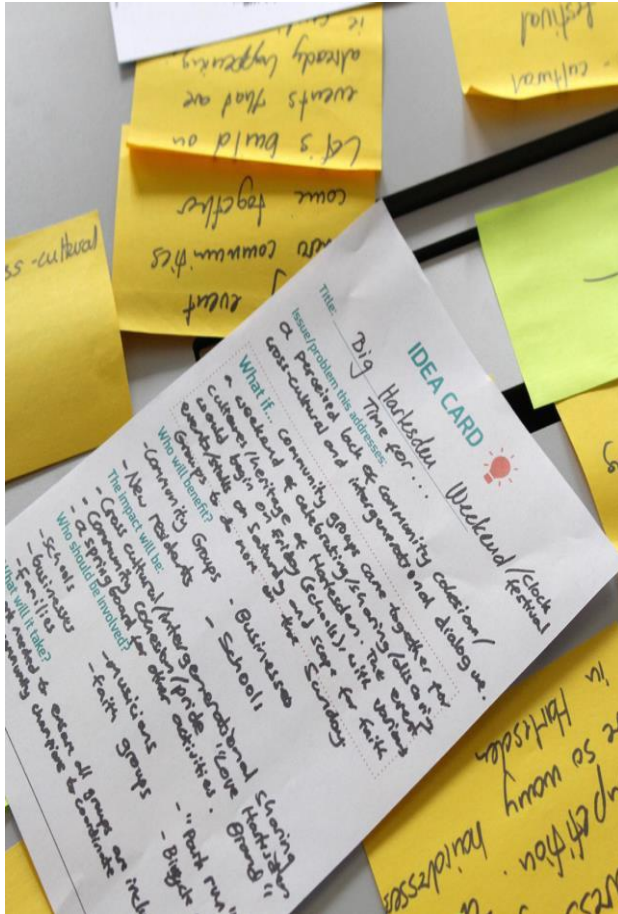 IDEA CARD
Title: Big Harlesden Weekend/clock festival
Time for...
Issue/problem this addresses:
a perceived lack of community cohesion/
cross-cultural and intergenerational dialogue.
What if... community groups came together for
a weekend of celebrating/sharing/discovering
cultures/heritage of Harlesden. The event
would begin on Friday (schools), with various
events/stalls on Saturday and scope for faith
Groups to do more on the Sunday
Who will benefit?
- Community Groups
- Businesses
- New residents
- Schools
The impact will be:
- Cross cultural/intergenerational sharing
- Community cohesion/pride "Love Harlesden Brand"
- a springboard for other activities.
Who should be involved?
- Schools
- musicians
- "Park run"
- businesses
- faith groups
- Bicycle
- families
What will it take?
needed to ensure all groups are
to coordinate
event
communities
come together
Let's build on
events that are
already happening.
- cultural
festival
ss-cultural
in Harlesden
so many
hairdresses